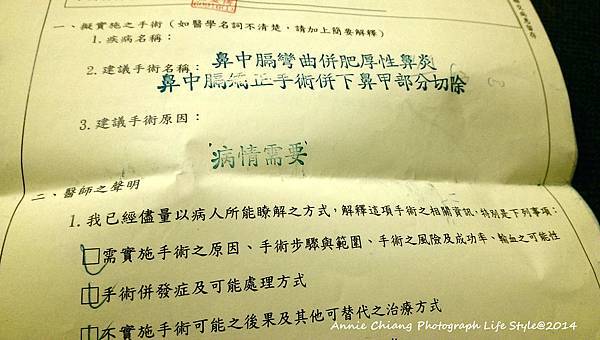 一、擬實施之手術（如醫學名詞不清楚，請加上簡要解釋）
1. 疾病名稱：
鼻中膈彎曲併肥厚性鼻炎
2. 建議手術名稱：
鼻中膈矯正手術併下鼻甲部分切除
3. 建議手術原因：
病情需要
二、醫師之聲明
1. 我已經儘量以病人所能瞭解之方式，解釋這項手術之相關資訊，特別是下列事項：
□需實施手術之原因、手術步驟與範圍、手術之風險及成功率、輸血之可能性
□手術併發症及可能處理方式
□不實施手術可能之後果及其他可替代之治療方式
Annie Chiang Photograph Life Style@2014